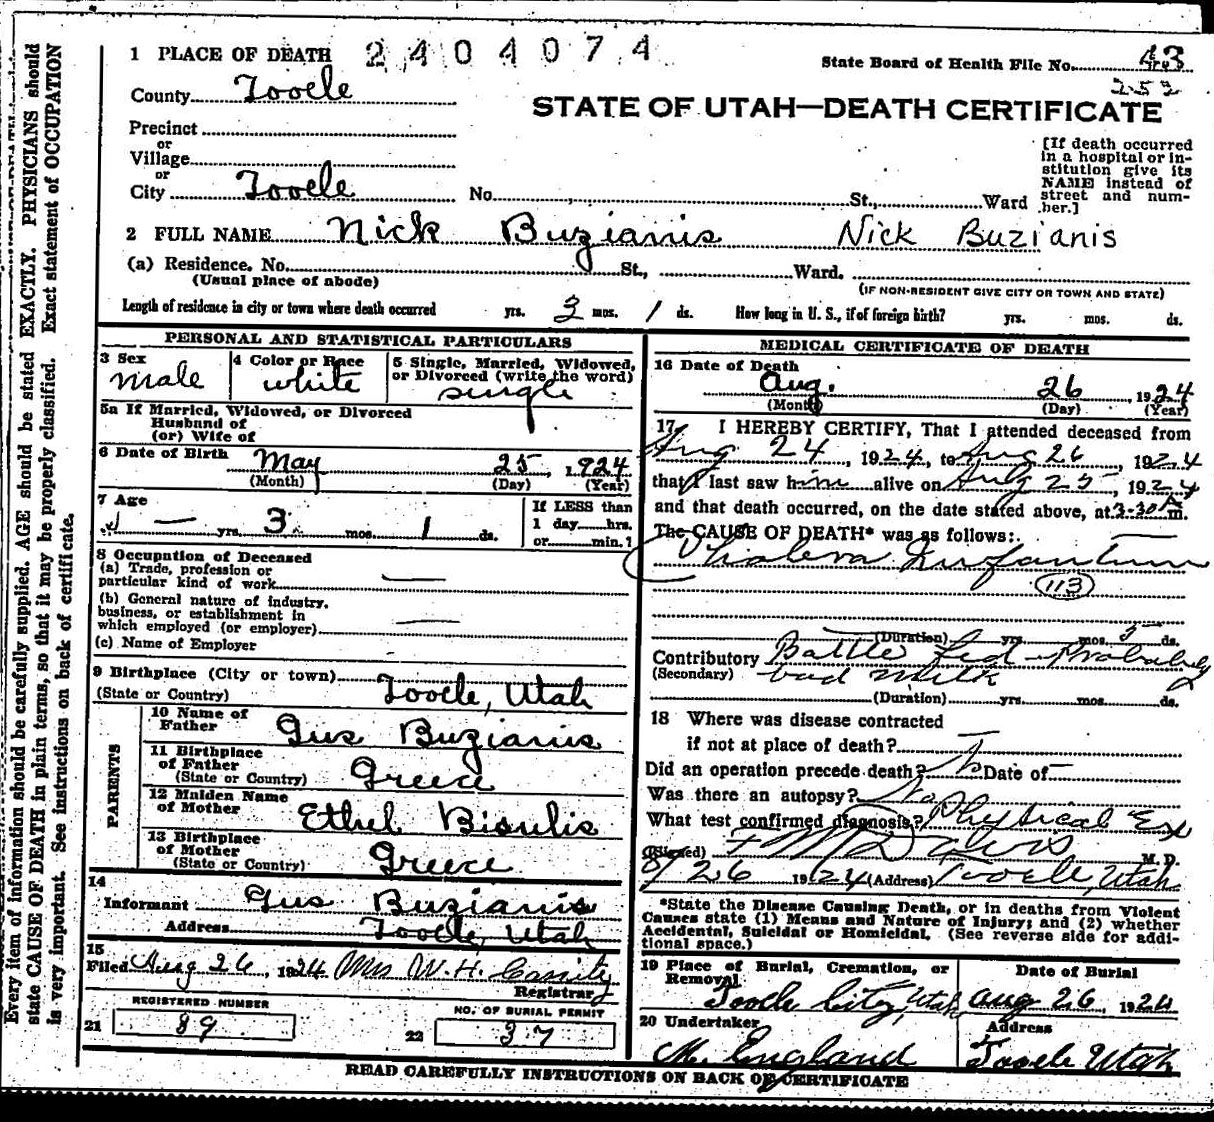 1 PLACE OF DEATH 2404074
State Board of Health File No. 43
252
County Tooele
STATE OF UTAH—DEATH CERTIFICATE
Precinct
or
Village
or
City Tooele No. St., Ward
[If death occurred
in a hospital or in-
stitution give its
NAME instead of
street and num-
ber.]
2 FULL NAME Nick Buzianis Nick Buzianis
(a) Residence. No. St., Ward.
(Usual place of abode)
(IF NON-RESIDENT GIVE CITY OR TOWN AND STATE)
Length of residence in city or town where death occurred yrs. 3 mos. 1 ds. How long in U. S., if of foreign birth? yrs. mos. ds.
PERSONAL AND STATISTICAL PARTICULARS
3 Sex
male
4 Color or Race
white
5 Single, Married, Widowed,
or Divorced (write the word)
single
5a If Married, Widowed, or Divorced
Husband of
(or) Wife of
6 Date of Birth May 25, 1924
(Month) (Day) (Year)
7 Age
— yrs. 3 mos. 1 ds.
If LESS than
1 day......hrs.
or......min.?
8 Occupation of Deceased
(a) Trade, profession or
particular kind of work —
(b) General nature of industry,
business, or establishment in
which employed (or employer) —
(c) Name of Employer
9 Birthplace (City or town)
(State or Country) Tooele, Utah
PARENTS
10 Name of
Father Gus Buzianis
11 Birthplace
of Father
(State or Country) Greece
12 Maiden Name
of Mother Ethel Bisulis
13 Birthplace
of Mother
(State or Country) Greece
14
Informant Gus Buzianis
Address Tooele, Utah
15
Filed Aug 26, 1924 Mrs W. H. Cassity
Registrar
REGISTERED NUMBER
21 89
NO. OF BURIAL PERMIT
22 37
MEDICAL CERTIFICATE OF DEATH
16 Date of Death
Aug. 26, 1924
(Month) (Day) (Year)
17 I HEREBY CERTIFY, That I attended deceased from
Aug 24, 1924, to Aug 26, 1924
that I last saw him alive on Aug 25, 1924
and that death occurred, on the date stated above, at 3-30 A m.
The CAUSE OF DEATH* was as follows:
Cholera Infantum
113
(Duration) yrs. mos. 5 ds.
Contributory Bottle Fed - Probably
(Secondary) bad milk
(Duration) yrs. mos. ds.
18 Where was disease contracted
if not at place of death?
Did an operation precede death? No Date of
Was there an autopsy? No
What test confirmed diagnosis? Physical Ex
(Signed) F M Davis M. D.
8/26 1924 (Address) Tooele, Utah
*State the Disease Causing Death, or in deaths from Violent
Causes state (1) Means and Nature of Injury; and (2) whether
Accidental, Suicidal or Homicidal. (See reverse side for addi-
tional space.)
19 Place of Burial, Cremation, or
Removal
Tooele City, Utah
Date of Burial
Aug 26, 1924
20 Undertaker
M. England
Address
Tooele Utah
READ CAREFULLY INSTRUCTIONS ON BACK OF CERTIFICATE
Every item of information should be carefully supplied. AGE should be stated EXACTLY. PHYSICIANS should
state CAUSE OF DEATH in plain terms, so that it may be properly classified. Exact statement of OCCUPATION
is very important. See instructions on back of certificate.